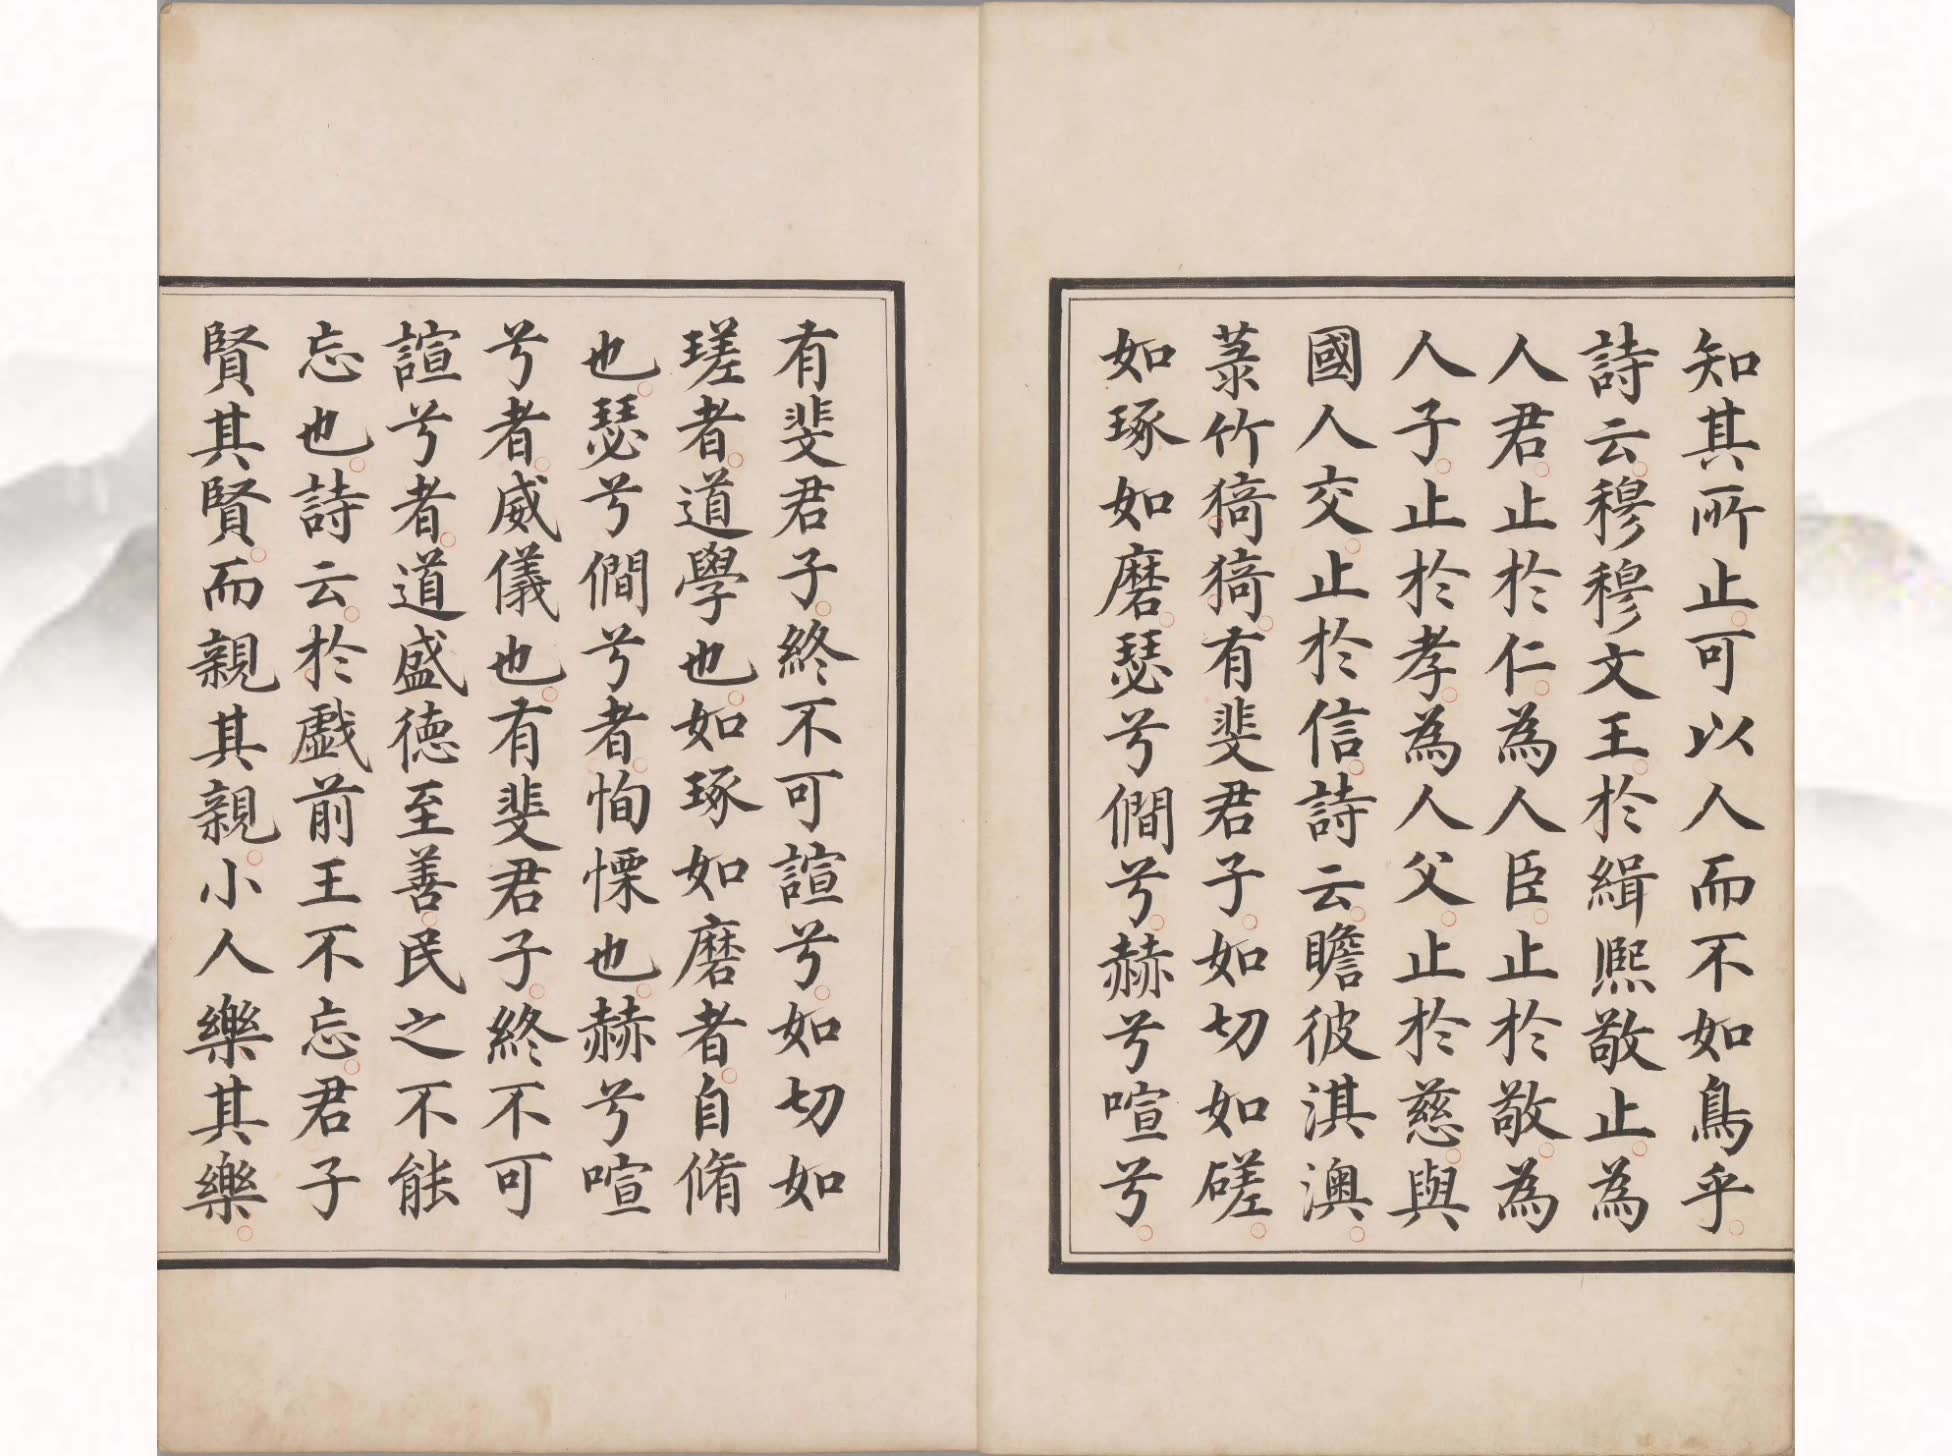 知其所止可以人而不如鳥乎
詩云穆穆文王於緝熙敬止為
人君止於仁為人臣止於敬為
人子止於孝為人父止於慈與
國人交止於信詩云瞻彼淇澳
菉竹猗猗有斐君子如切如磋
如琢如磨瑟兮僩兮赫兮喧兮
有斐君子終不可諠兮如切如
瑳者道學也如琢如磨者自脩
也瑟兮僩兮者恂慄也赫兮喧
兮者威儀也有斐君子終不可
諠兮者道盛德至善民之不能
忘也詩云於戲前王不忘君子
賢其賢而親其親小人樂其樂